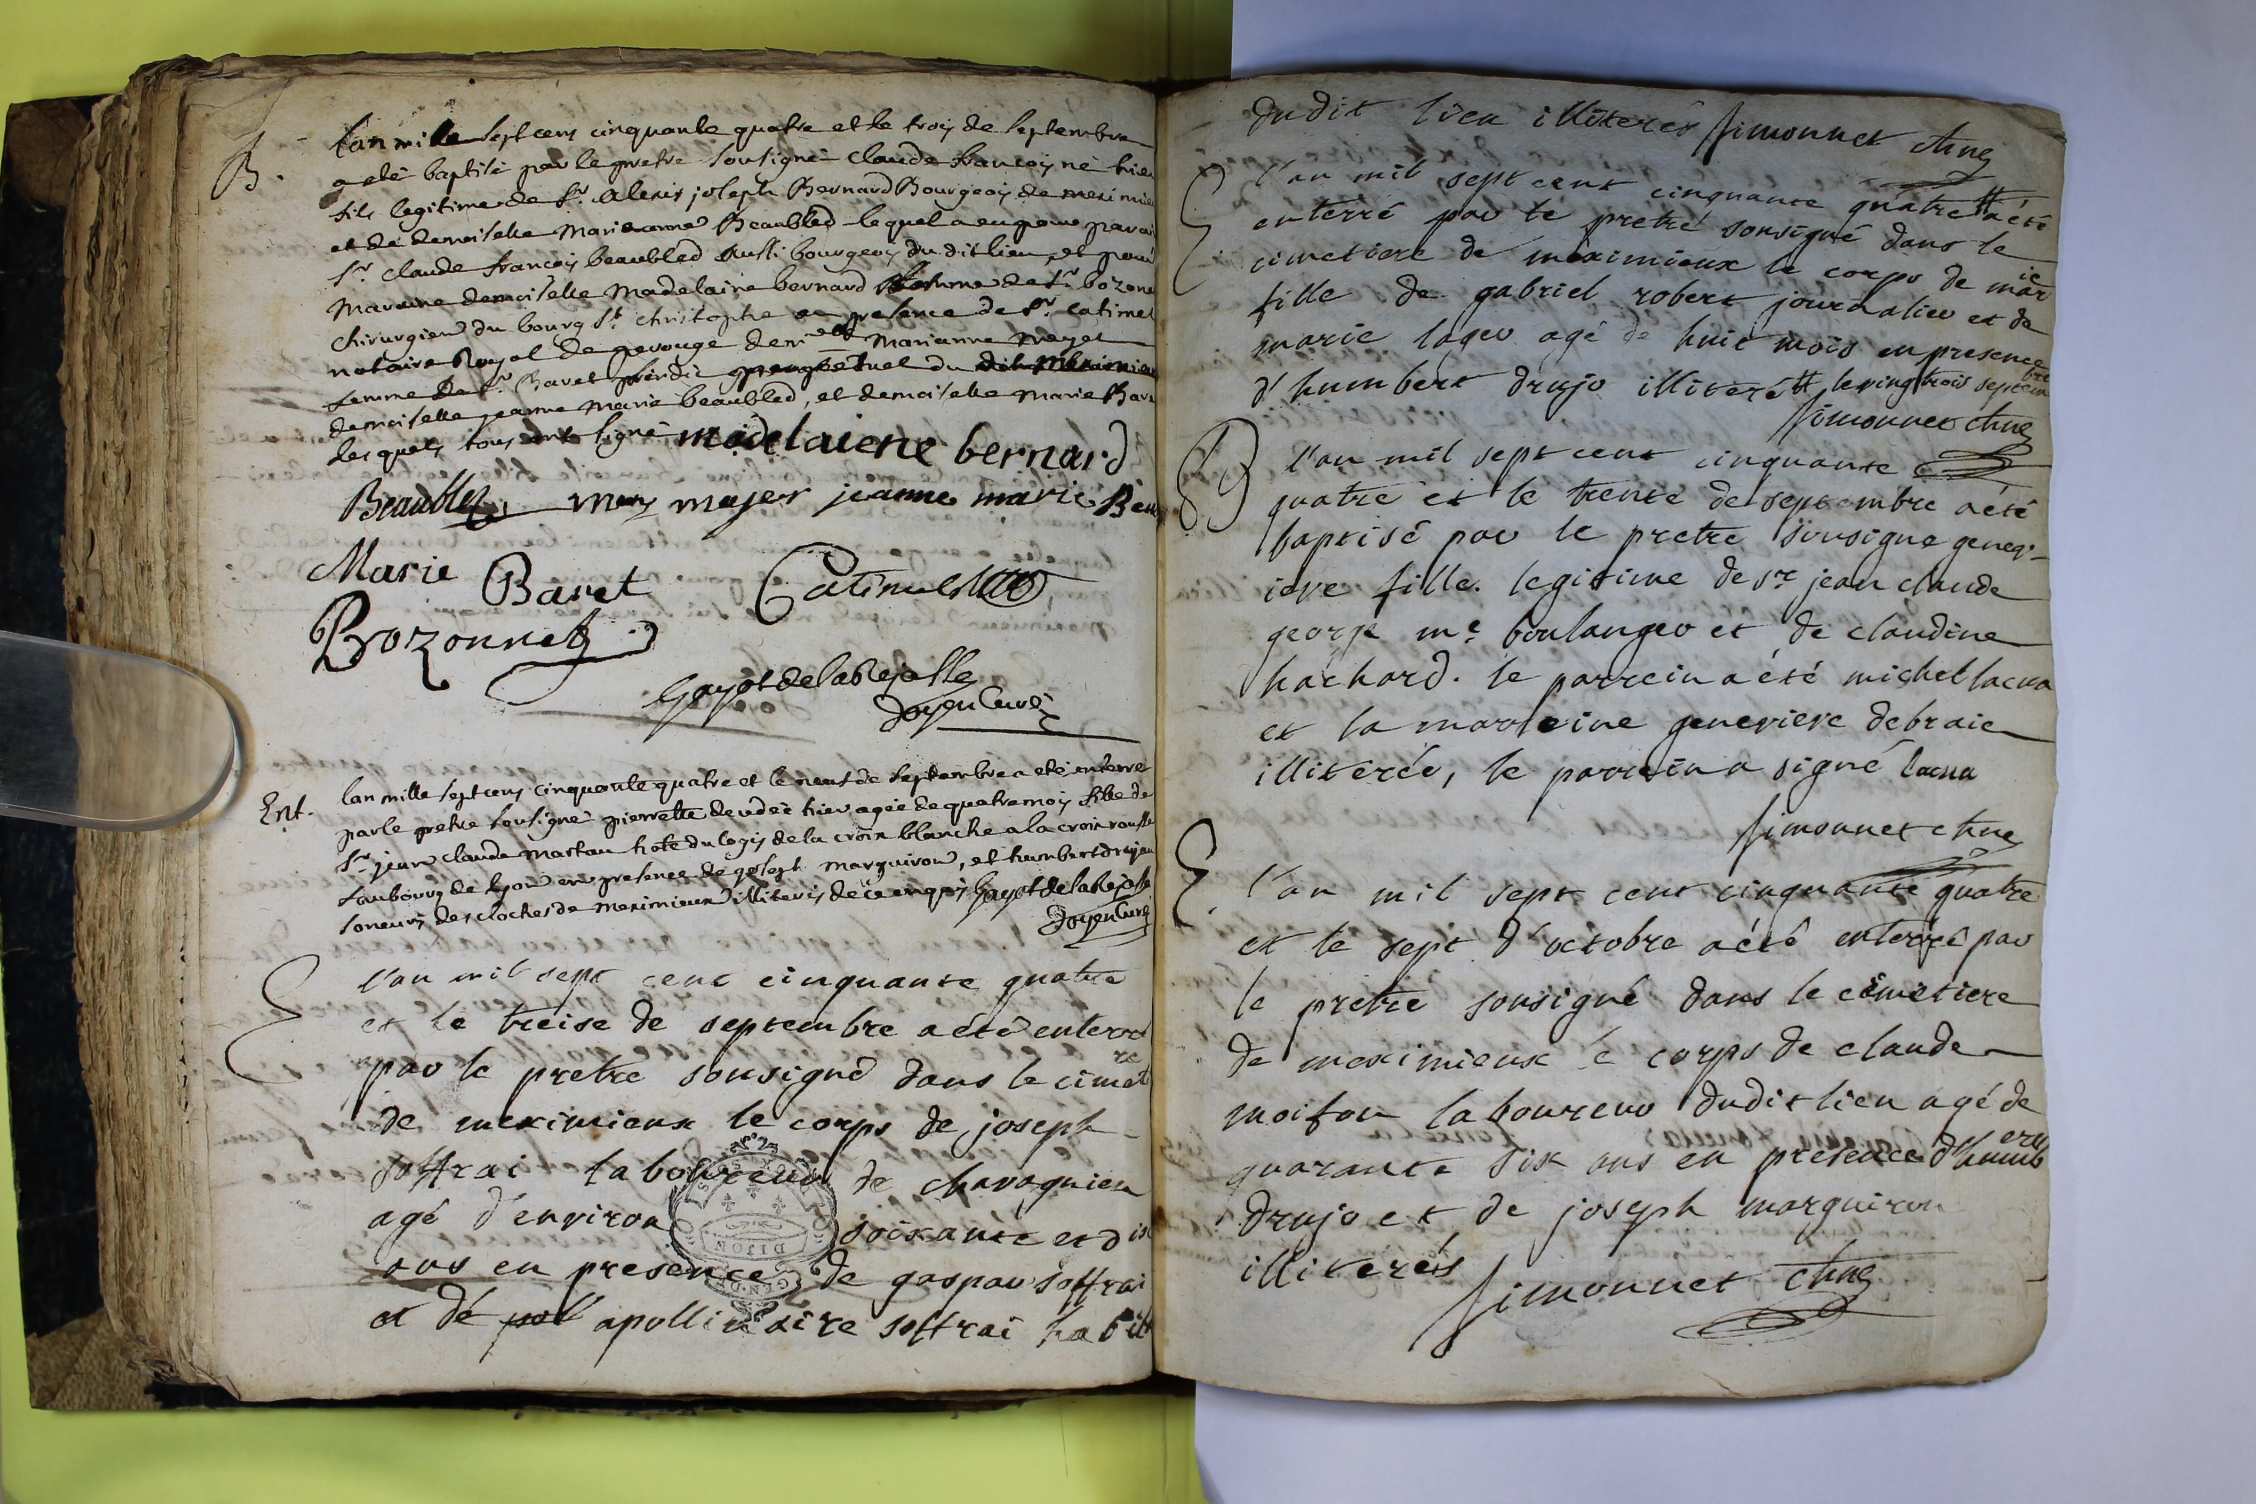 B.
L'an mille sept cens cinquante quatre et le trois de septembre
a eté baptisé par le pretre sousigné claude francois né hier
fils legitime de Sr. alexis joseph Bernard Bourgeois de meximieu
et de demoiselle marieanne Beaubled lequel a eu pour parai
Sr claude francois beaubled aussi bourgeois du dit lieu, et pour
maraine demoiselle madelaine bernard femme de Sr bozone
chirurgien du bourg St christophe en presence de Sr. catimel
notaire Royal de perouge demlle marianne mayer
femme de Sr Baret du
demoiselle jeanne marie beaubled, et demoiselle marie Bare
les quels tous ont signé madelaiene bernard
Beaubled mayer jeanne marie Beau
Marie Baret Catimel
Bozonnet
Gayot de la Rejasse
doyen Curé
Ent.
L'an mille sept cens cinquante quatre et le neuf de septembre a eté enterré
par le pretre sousigné pierrette decedée hier agée de quatre mois fille de
Sr jean claude martau hote du logis de la croix blanche a la croix rousse
faubourg de lyon en presence de joseph marguiron, et humbert drujon
soneurs des cloches de meximieux illiteris de ce enquis Gayot de la Rejasse
doyen Curé
E
l'an mil sept cent cinquante quatre
et le treise de septembre a été enterré
par le pretre sousigné dans le cimetre
de meximieux le corps de joseph
soffrai laboureur de chavagnieu
agé d'environ soixante et dix
ans en presence de gaspar soffrai
et de pol apollinaire soffrai habit
DIJON
dudit lieu illiterés Simonnet
E
l'an mil sept cent cinquante quatre # a été
enterré par le pretre sousigné dans le
cimetiere de meximieux le corps de marie
fille de gabriel robert journalier et de
marie lager agé de huit mois en presence
d'humbert drujo illiteré # le vingt trois septembre
Simonnet
B
l'an mil sept cent cinquante
quatre et le trente de septembre a été
baptisé par le pretre sousigne genev-
ieve fille legitime de sr jean claude
george me boulanger et de claudine
hachard. le parrein a été michel lacua
et la marreine genevieve debraie
illiterée, le parrein a signé lacua
Simonnet
E.
l'an mil sept cent cinquante quatre
et le sept d'octobre a été enterré par
le pretre sousigné dans le cimetiere
de meximieux le corps de claude
moifon laboureur dudit lieu agé de
quarante six ans en presence d'humbert
drujo et de joseph marguiron
illiterés
Simonnet